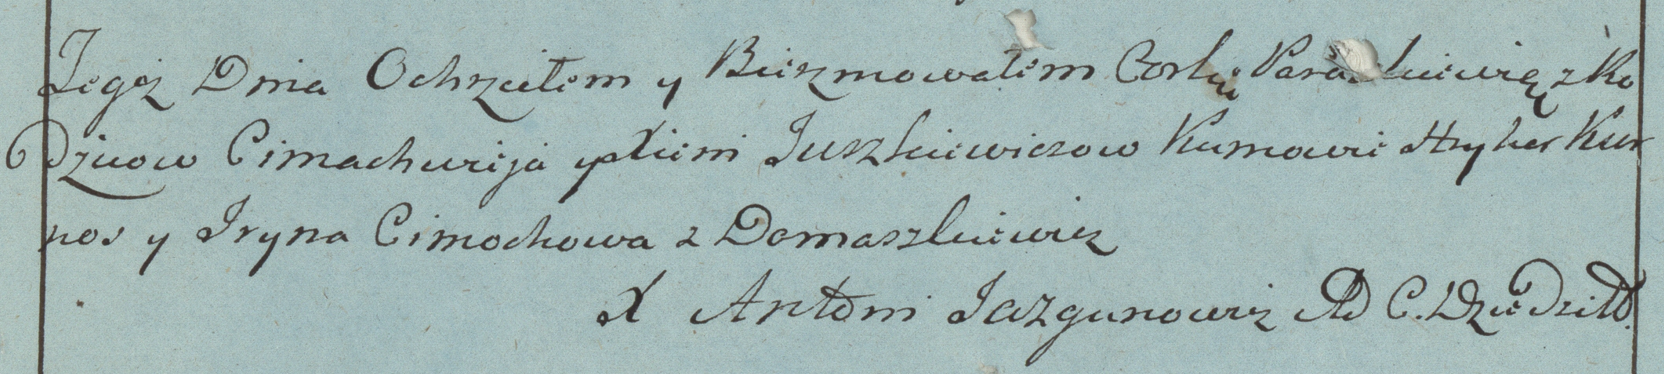 Tegoż Dnia Ochrzciłem y Bierzmowałem Corkę Paraskiewię z Ro
Dzicow Cimacheja y Xieni Juszkiewiczow Kumowie Hryher Kur
nos y Iryna Cimochowa z Domaszkiewicz
X Antoni Jazgunowicz AD C. Dziedziłł.